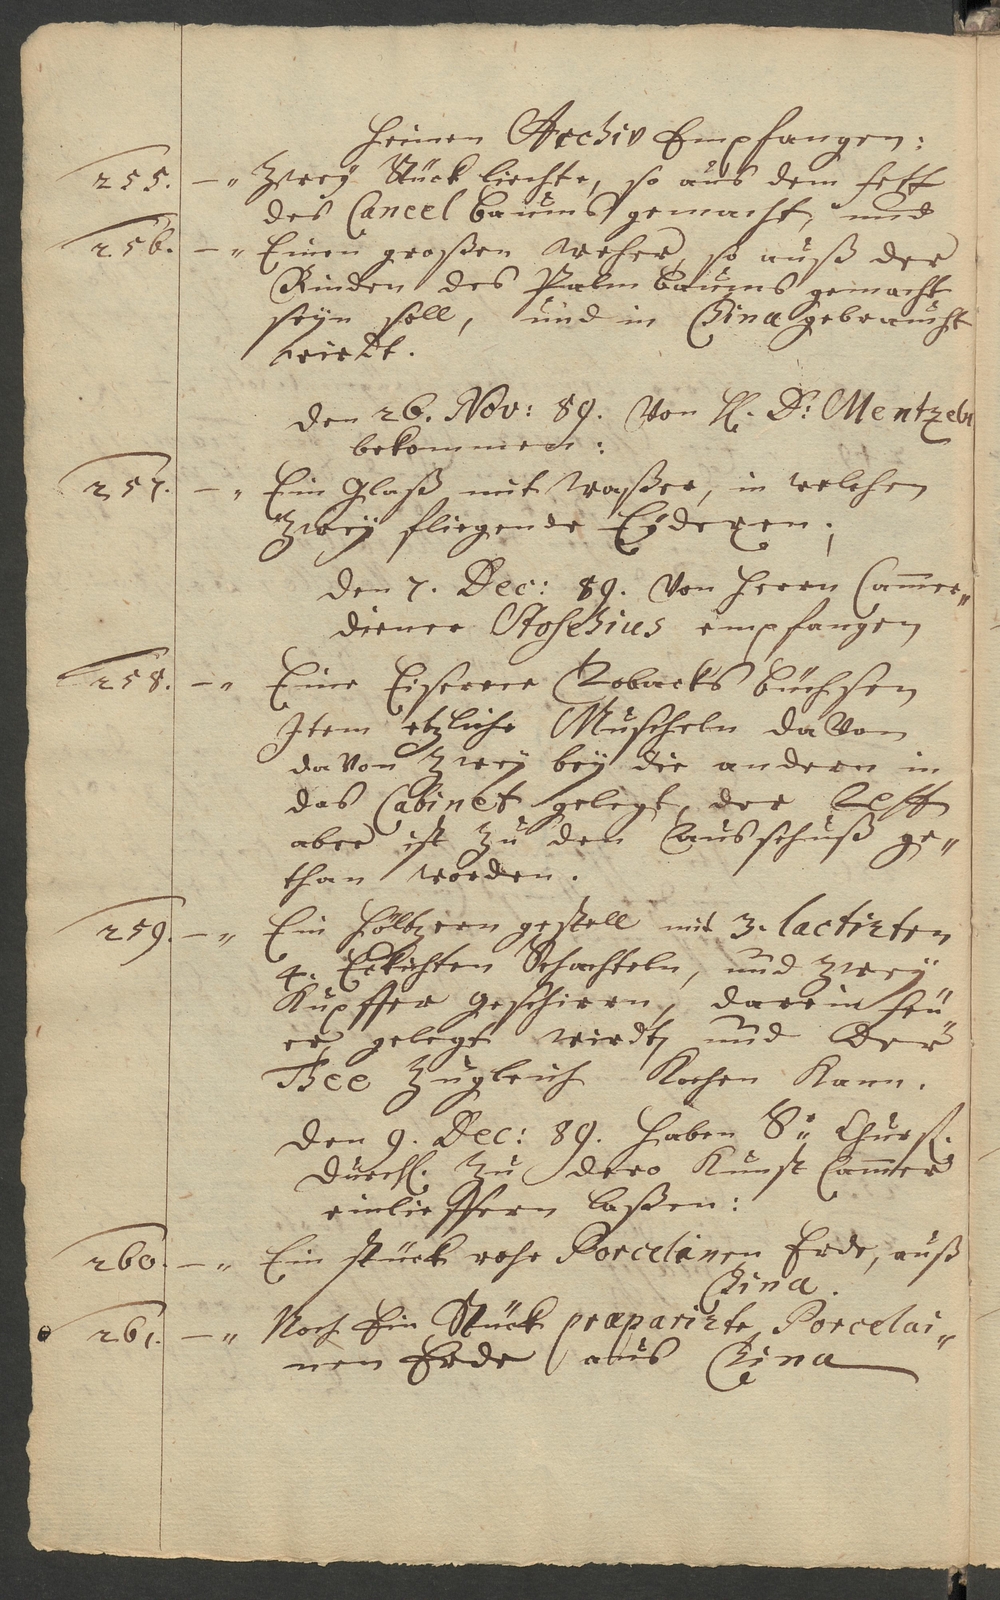 heimen Archiv Empfangen:
255. — „ Zweÿ Stück liechte, so aus dem fett
des Caneel baums gemacht, und
256. — „ Einen großen weher, so auß der
Rinden des Palm baums gemacht
seÿn soll, und in China gebraucht
wirdt.
den 26. Nov: 89. Von H. D: Mentzeln
bekommen:
257. — „ Ein Glaß mit Waßer, in welchen
Zweÿ fliegende Eÿdexen;
den 7. Dec: 89. Von Herrn Cam̅er„
diener Stoschius empfangen
258. — „ Eine Eiserne Tobacks büchsen
Item etzliche Muscheln davon
davon Zweÿ beÿ die andern in
das Cabinet gelegt, der Rest
aber ist Zu den Ausschuß ge„
than worden.
259. — „ Ein höltzern gestell mit 3. lactirten
4. Eckichten Schachteln, und Zweÿ
Kupffer Geschirrn, darein feü„
er gelegt wirdt, und Der
Thee Zugleich Kochen Kann.
den 9. Dec: 89. haben Sr: Churf.
Durchl. Zu dero Kunst Cam̅er
einlieffern laßen:
260. — „ Ein stück rohe Porcelänen Erde, auß
China.
261. — „ Noch Ein Stück præparirte Porcelai„
nen Erde aus China